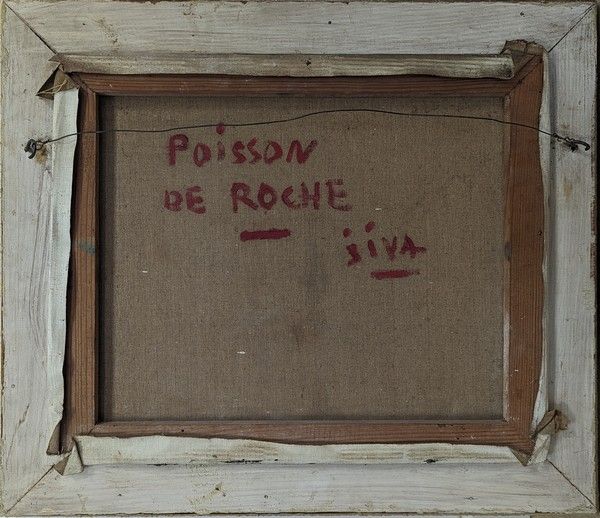 Poisson
DE ROCHE
siva